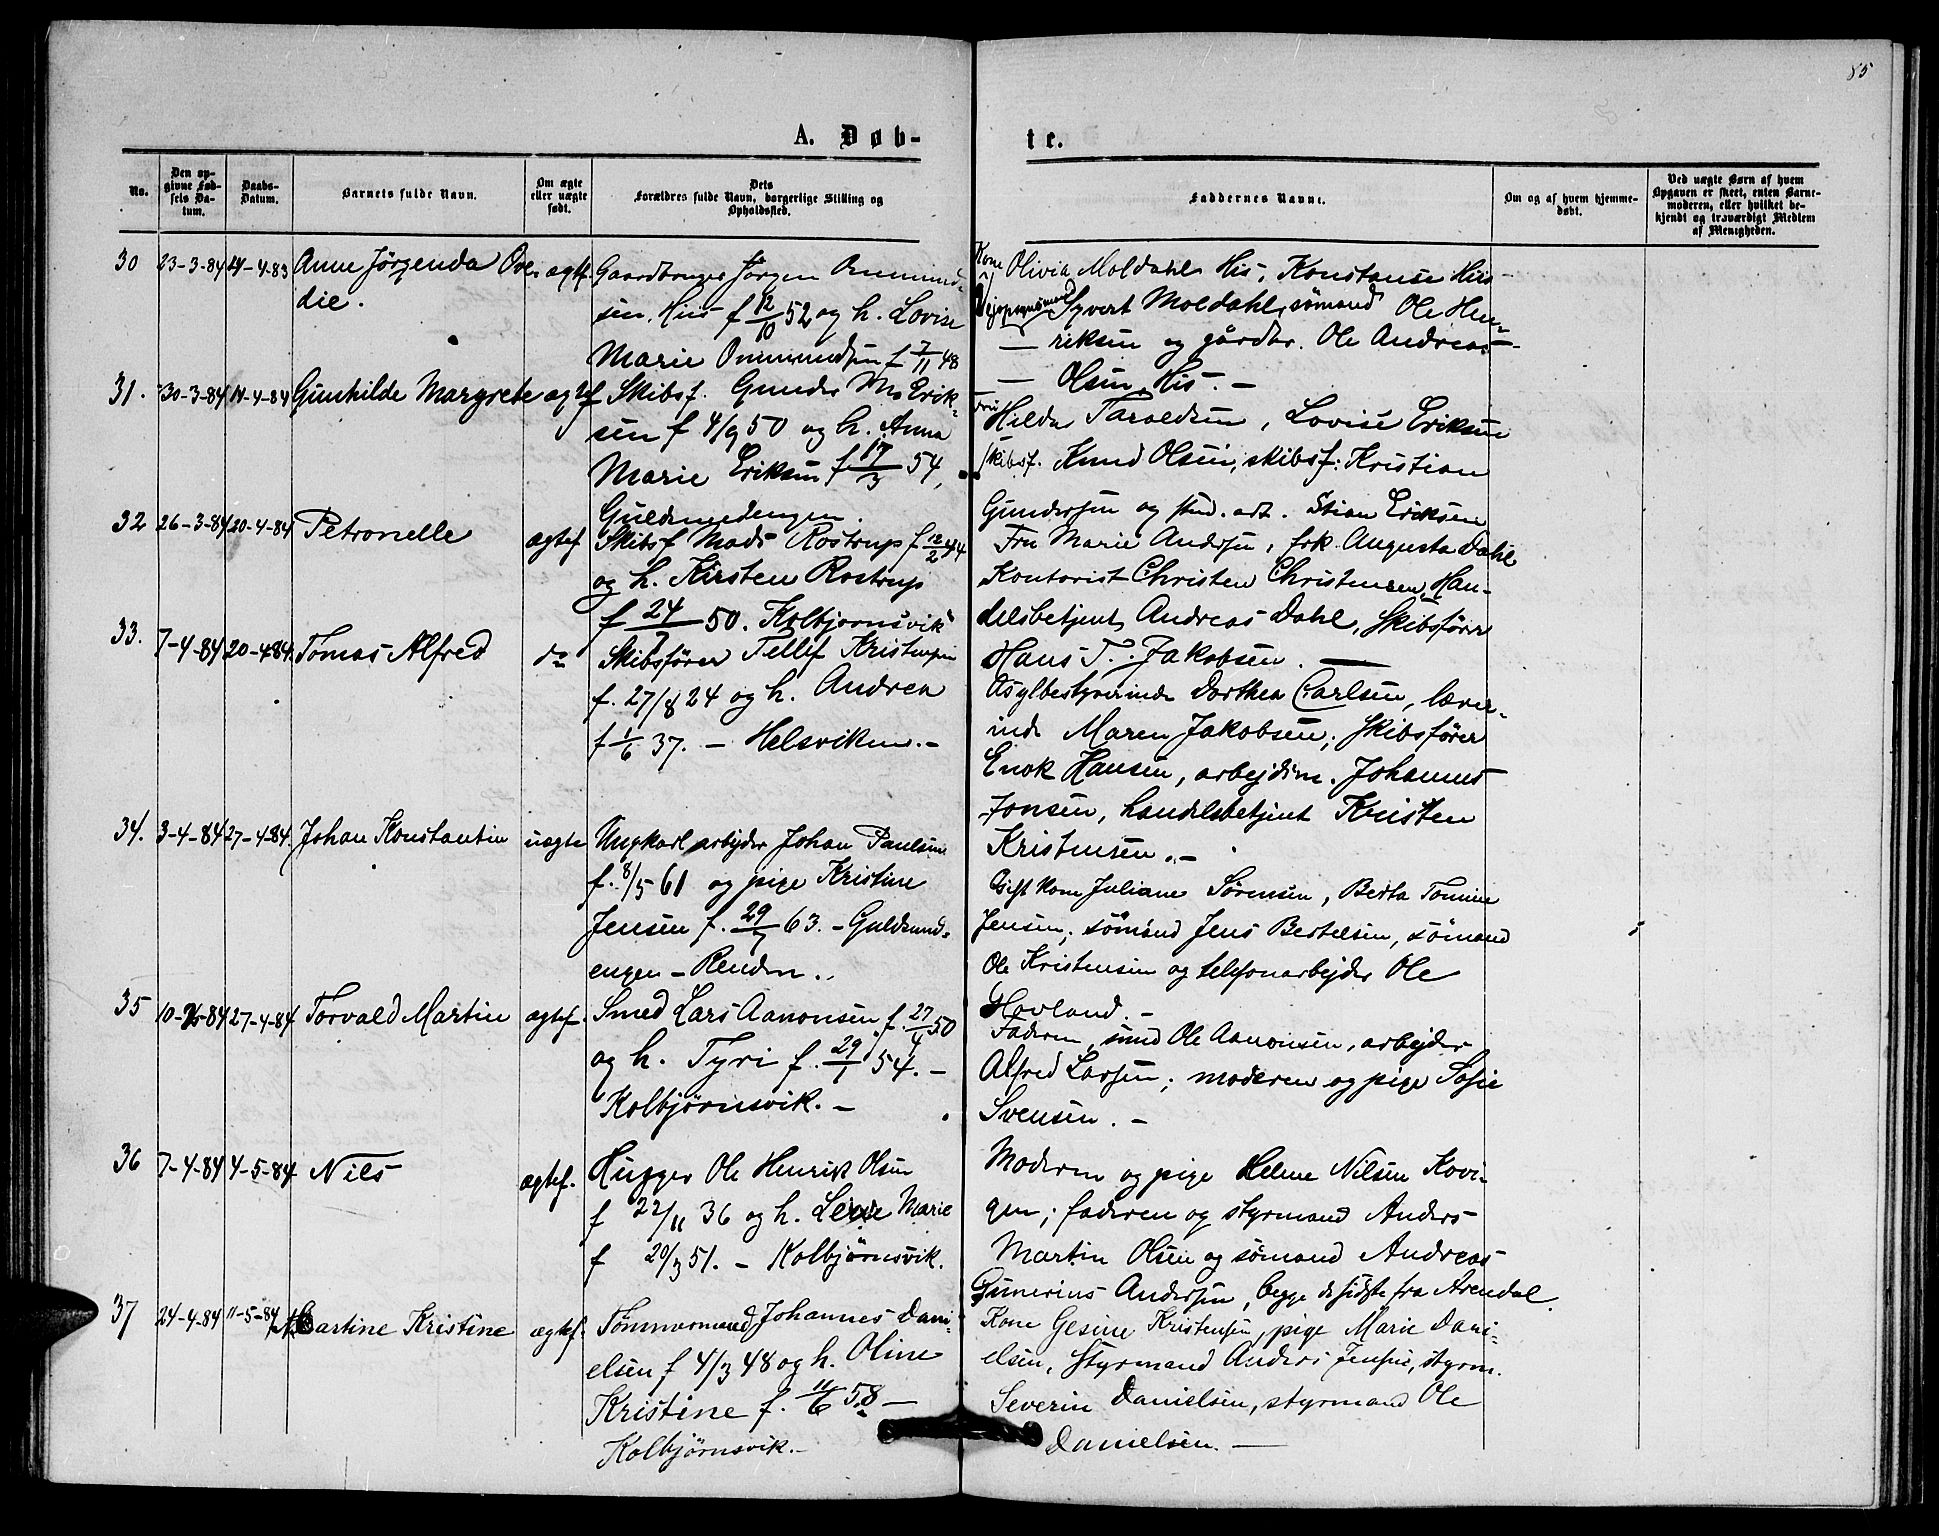 85
A. Døb-
te.
No.
Den op-
givne Fød-
sels Da-
tum.
Daabs-
Datum.
Barnets fulde Navn.
Om ægte
eller uægte
født.
Dets
Forældres fulde Navn, borgerlige Stilling og
Opholdssted.
Faddernes Navne.
Om og af hvem hjemme-
døbt.
Ved uægte Børn af hvem
Opgaven er skeet, enten Barne-
moderen, eller hvilket be-
kjendt og troværdigt Medlem
af Menigheden.
30 23-3-84 14-4-83 Anne Jørgenda Ove-
die.
ægtef. Gaardbruger Jørgen Ommund-
sen, His f 12/10 52 og h. Lovise
Marie Ommundsen f 7/11 48
Kone Olivia Moldahl His, Konstanse His
Syvert Moldahl, sømand Ole Hen-
riksen og gårdbr. Ole Andreas
Olsen His. -
31. 30-3-84 14-4-84 Gunhilde Margrete ægtef
Skibsf. Gunder Ms Erik-
sen f 4/9 50 og h. Anna
Marie Eriksen f. 17/3 54,
Guldsmedengen.
fru Hilda Taraldsen, Lovise Eriksen
skibsf. Knud Olsen, skibsf. Kristian
Gundersen og stud. art. Stian Eriksen
32 26-3-84 20-4-84 Petronelle ægtef.
Skibsf Mads Rostrup f 12/2 44
og h. Kirsten Rostrup
f 24/7 50. Kolbjørnsvik
Fru Marie Andersen, frk. Augusta Dahl
Kontorist Christen Christensen, Han-
delsbetjent Andreas Dahl, Skibsfører
Hans T. Jakobsen.
33. 7-4-84 20-4-84. Tomas Alfred do
Skibsfører Tellef Kristensen
f. 27/8 24 og h. Andrea
f 1/6 37. - Helsviken. -
Asylbestyrerinde Dorthea Carlsen, lærer-
inde Maren Jakobsen; Skibsfører
Enok Hansen, arbejdsm. Johannes
Jonsen, handelsbetjent Kristen
Kristensen. -
34. 3-4-84 27-4-84. Johan Konstantin uægte
Ungkarl arbejder Johan Paulsen
f. 8/5 61 og pige Kristine
Jensen f. 29/7 63. - Guldsmed-
engen - Renden.
Gift kone Juliane Sørensen, Berta Tomine
Jensen; sømand Jens Bertelsen, sømand
Ole Kristensen og telefonarbejder Ole
Hovland. -
35 10-2-84 27-4-84. Torvald Martin ægtef.
Smed Lars Aanonsen f. 27/4 50
og h. Tyri f. 29/1 54. -
Kolbjørnsvik. -
Faderen, smed Ole Aanonsen, arbejder
Alfred Larsen; moderen og pige Sofie
Svensen. -
36 7-4-84 4-5-84 Nils ægtef.
Hugger Ole Henrik Olsen
f 22/11 36 og h. Lene Marie
f 20/3 51. - Kolbjørnsvik.
Moderen og pige Helene Nilsen Kovi-
gen; faderen og styrmand Anders
Martin Olsen og sømand Andreas
Gunerius Andersen, begge de sidste fra Arendal.
37 24-4-84 11-5-84 Martine Kristine ægtef.
Tømmermand Johannes Dani-
elsen f 4/3 48 og h. Oline
Kristine f. 11/6 58 -
Kolbjørnsvik. -
Kone Gesine Kristensen, pige Marie Dani-
elsen, Styrmand Anders Jensen, styrm.
Severin Danielsen, styrmand Ole
Danielsen. -